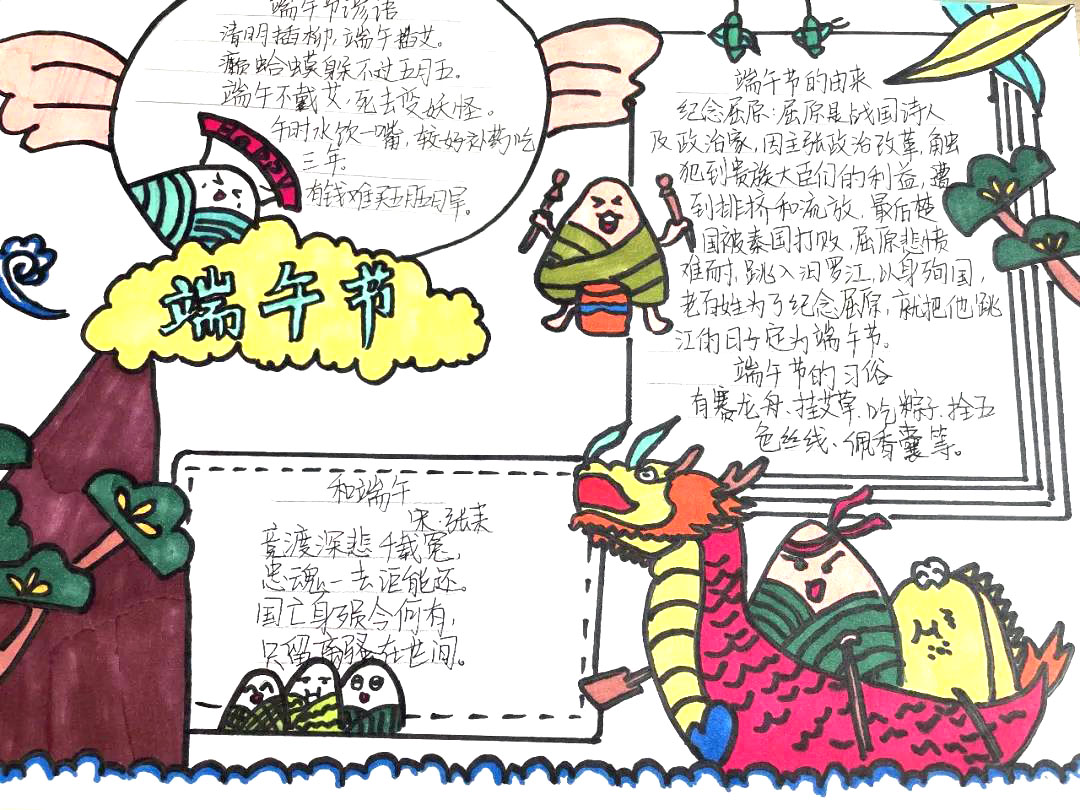 端午节谚语
清明插柳,端午插艾。
癞蛤蟆躲不过五月五。
端午不戴艾,死去变妖怪。
午时水饮一嘴,较好补药吃
三年。
有钱难买五月五日旱。
端午节
端午节的由来
纪念屈原:屈原是战国诗人
及政治家,因主张政治改革,触
犯到贵族大臣们的利益,遭
到排挤和流放,最后楚
国被秦国打败,屈原悲愤
难耐,跳入汨罗江,以身殉国,
老百姓为了纪念屈原,就把他跳
江的日子定为端午节。
端午节的习俗
有赛龙舟、挂艾草、吃粽子、拴五
色丝线、佩香囊等。
和端午
宋·张耒
竞渡深悲千载冤,
忠魂一去讵能还。
国亡身殒今何有,
只留离骚在世间。